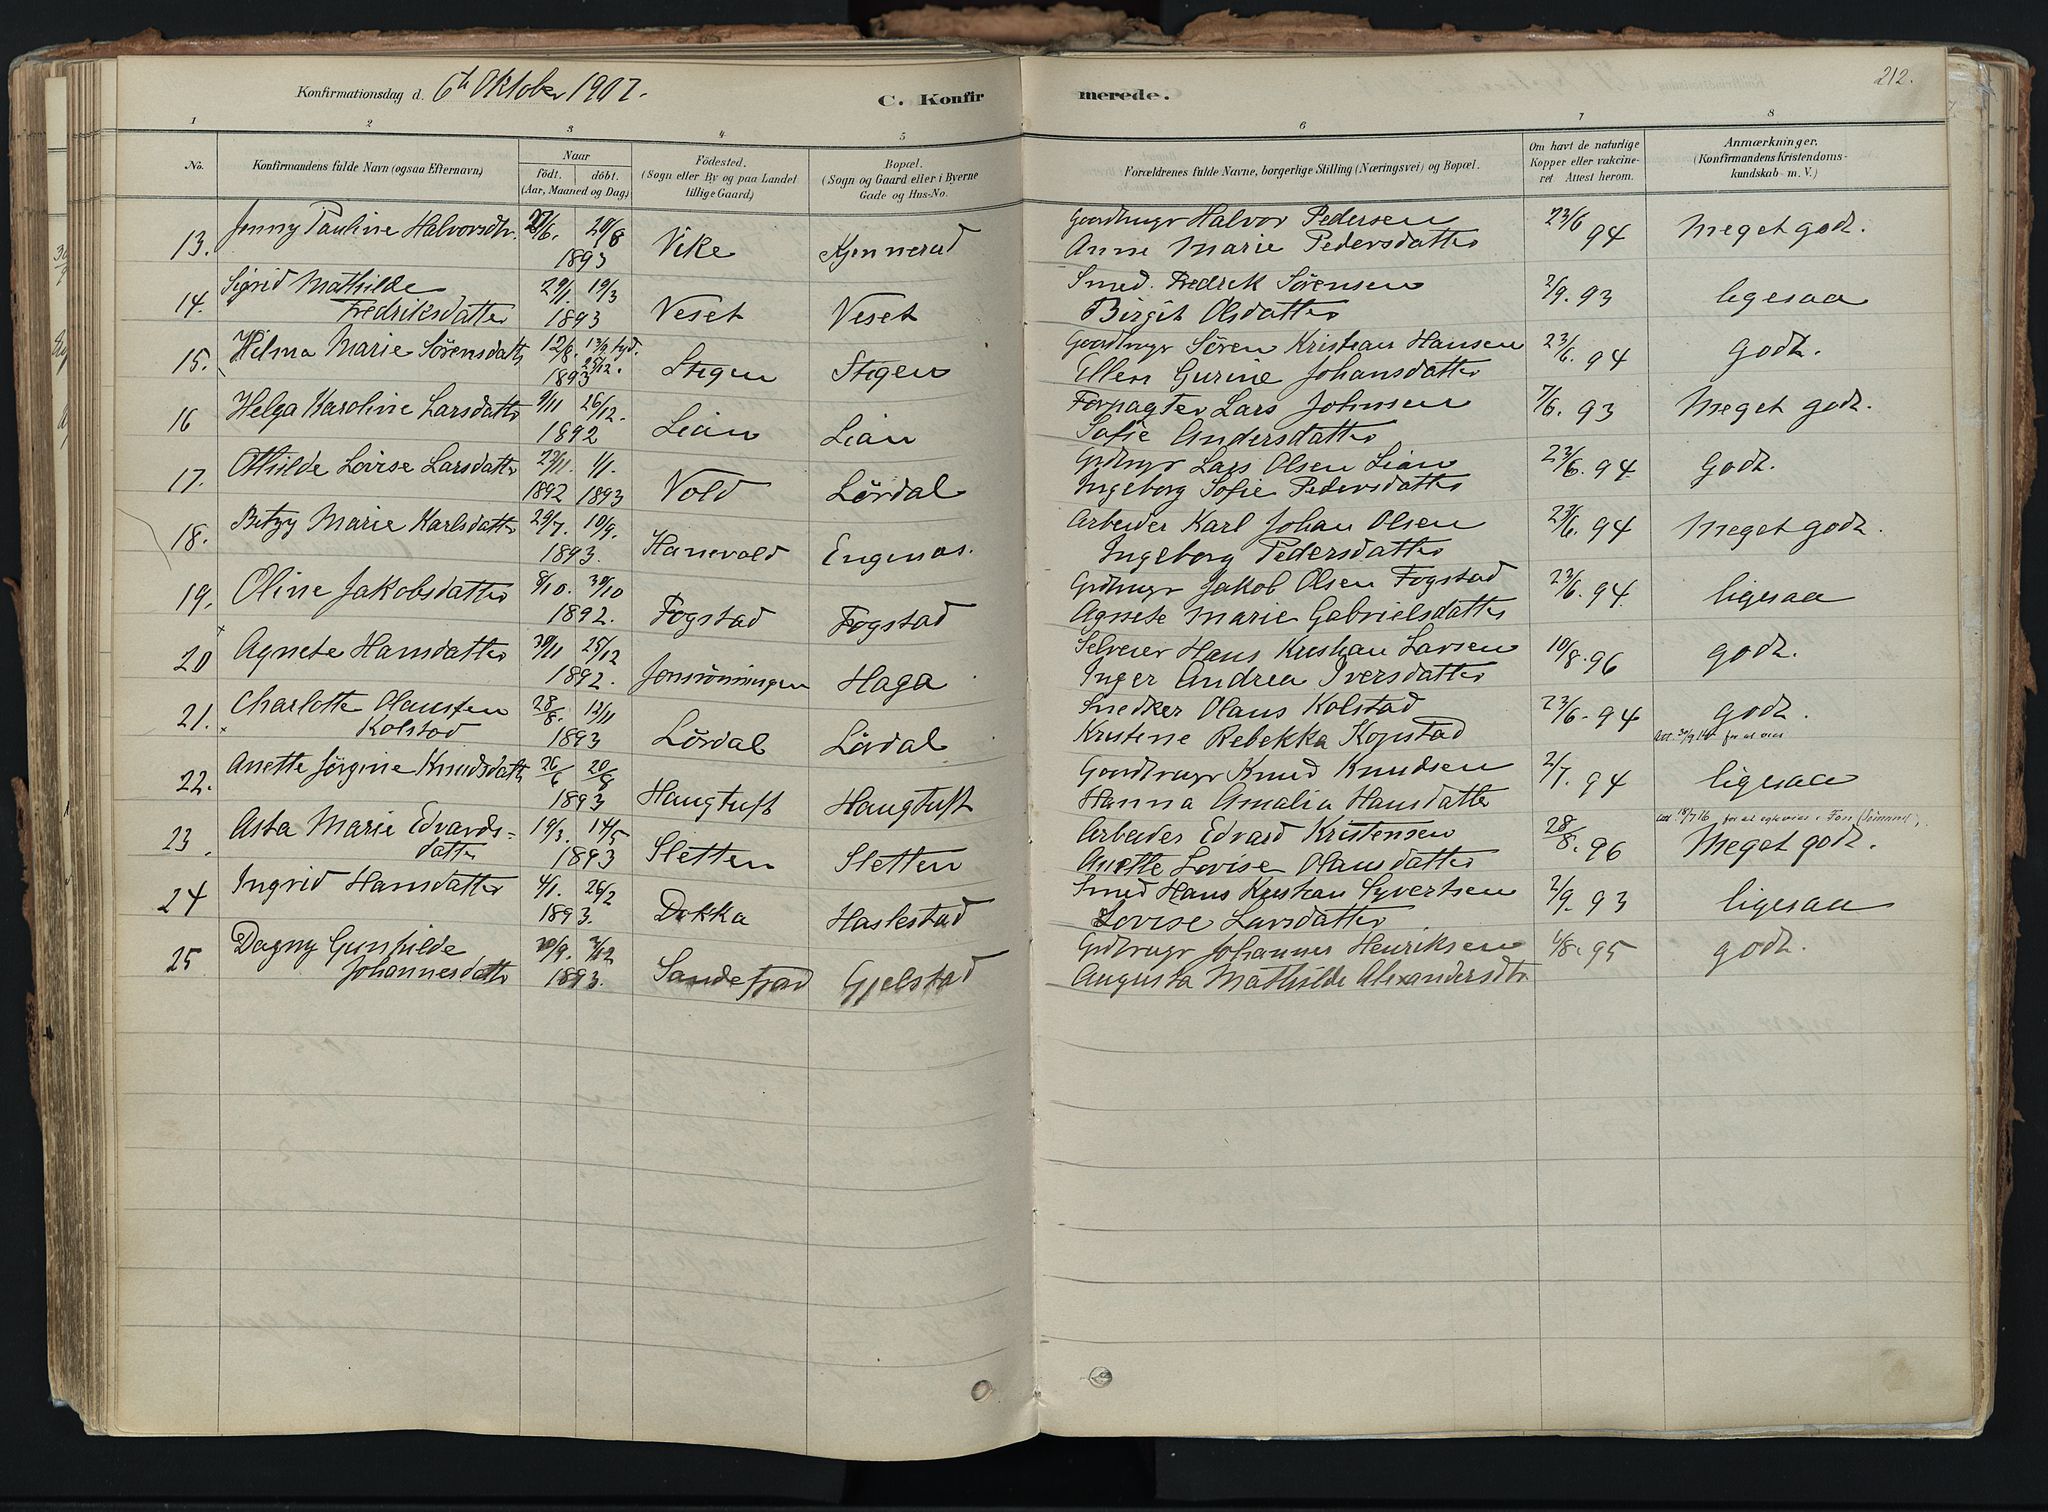 212.
Konfirmationsdag d. 6te Oktober 1907.
C. Konfirmerede.
1 2 3 4 5 6 7 8
No.
Konfirmandens fulde Navn (ogsaa Efternavn)
Naar
födt. döbt.
(Aar, Maaned og Dag)
Födested.
(Sogn eller By og paa Landet
tillige Gaard)
Bopæl.
(Sogn og Gaard eller i Byerne
Gade og Hus-No.
Forældrenes fulde Navne, borgerlige Stilling (Næringsvei) og Bopæl.
Om havt de naturlige
Kopper eller vakcine-
ret Attest herom.
Anmærkninger.
(Konfirmandens Kristendoms-
kundskab m. V.)
13. Jenny Pauline Halvorsdtr. 27/6. 20/8 1893 Vike Kjennerud Gaardbrugr Halvor Pedersen 23/6 94 Meget godt.
Anne Marie Pedersdatter
14. Sigrid Mathilde 29/1. 19/3 1893 Veset Veset Smed. Fredrik Sørensen 2/9. 93 ligesaa
Fredriksdatter Birgit Olsdatter
15. Hilma Marie Sørensdatter 12/8. 25/12. 1893 Stigen Stigen Gaardbrugr Søren Kristian Hansen 23/6. 94 godt.
Ellen Gurine Johansdatter
16 Helga Karoline Larsdatter 9/11 26/12. 1892 Lian Lian Forpagter Lars Johnsen 7/6. 93 Meget godt.
Sofie Andersdatter
17. Othilde Lovise Larsdatter 23/11. 1/1. 1892 1893 Vold Lördal Grdbrugr Lars Olsen Lian 23/6. 94. Godt.
Ingeborg Sofie Pedersdatter
18. Betzy Marie Karlsdatter 29/7. 10/9. 1893. Hanevold Engenæs. Arbeider Karl Johan Olsen 23/6. 94 Meget godt.
Ingeborg Pedersdatter
19. Oline Jakobsdatter 8/10. 30/10 1892. Fogstad Fogstad Grdbrugr Jakob Olsen Fogstad 23/6. 94. ligesaa
Agnete Marie Gabrielsdatter
20 Agnete Hansdatter 30/11 25/12 1892. Jonsrönningen Haga Selveier Hans Kristian Larsen 10/8. 96 godt.
Inger Andrea Iversdatter
21. Charlotte Olaussen 28/8. 12/11 1893 Lördal Lördal Snedker Olaus Kolstad 23/6. 94 godt.
Kolstad Kristine Rebekka Kopstad
22. Anette Jørgine Knudsdatter 26/6 20/8 1893 Haugtuft Haugtuft Gaardbrugr Knud Knudsen 2/7. 94 ligesaa
Hanna Amalia Hansdatter
23. Asta Marie Edvards- 19/3. 14/5 1893 Sletten Sletten Arbeider Edvard Kristensen 28/8. 96 Meget godt.
datter Anette Lovise Olausdatter
24 Ingrid Hansdatter 4/1. 26/2 1893. Dokka Haslestad Smed Hans Kristian Syvertsen 2/9. 93 ligesaa
Lovise Larsdatter
25 Dagny Gunhilde 20/9. 3/12 1893. Sandefjord Gjelstad Grdbrugr Johannes Henriksen 1/8. 95 godt.
Johannesdatter Augusta Mathilde Alexandersdtr